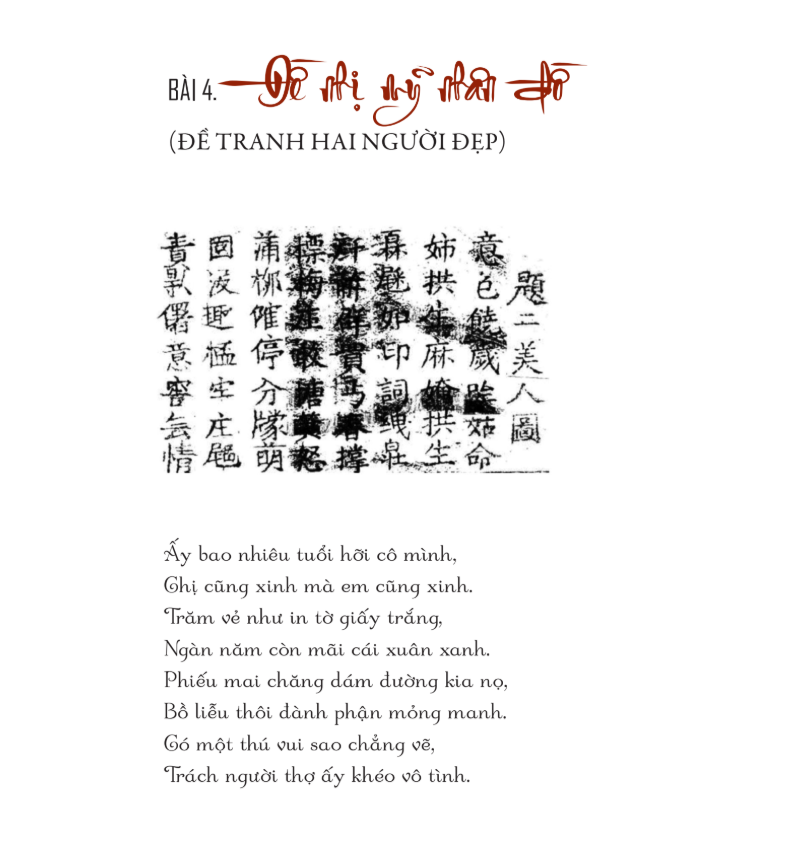 BÀI 4. Đề nhị mỹ nhân đồ
(ĐỀ TRANH HAI NGƯỜI ĐẸP)
題二美人圖
意包饒歲姑命
姉拱生麻拱生
如印詞絏
丐春撑
摽梅庄敢塘怒
蒲柳傕停分萌
固没趣牢庄
責意窖無情
Ấy bao nhiêu tuổi hỡi cô mình,
Chị cũng xinh mà em cũng xinh.
Trăm vẻ như in tờ giấy trắng,
Ngàn năm còn mãi cái xuân xanh.
Phiếu mai chăng dám đường kia nọ,
Bồ liễu thôi đành phận mỏng manh.
Có một thú vui sao chẳng vẽ,
Trách người thợ ấy khéo vô tình.